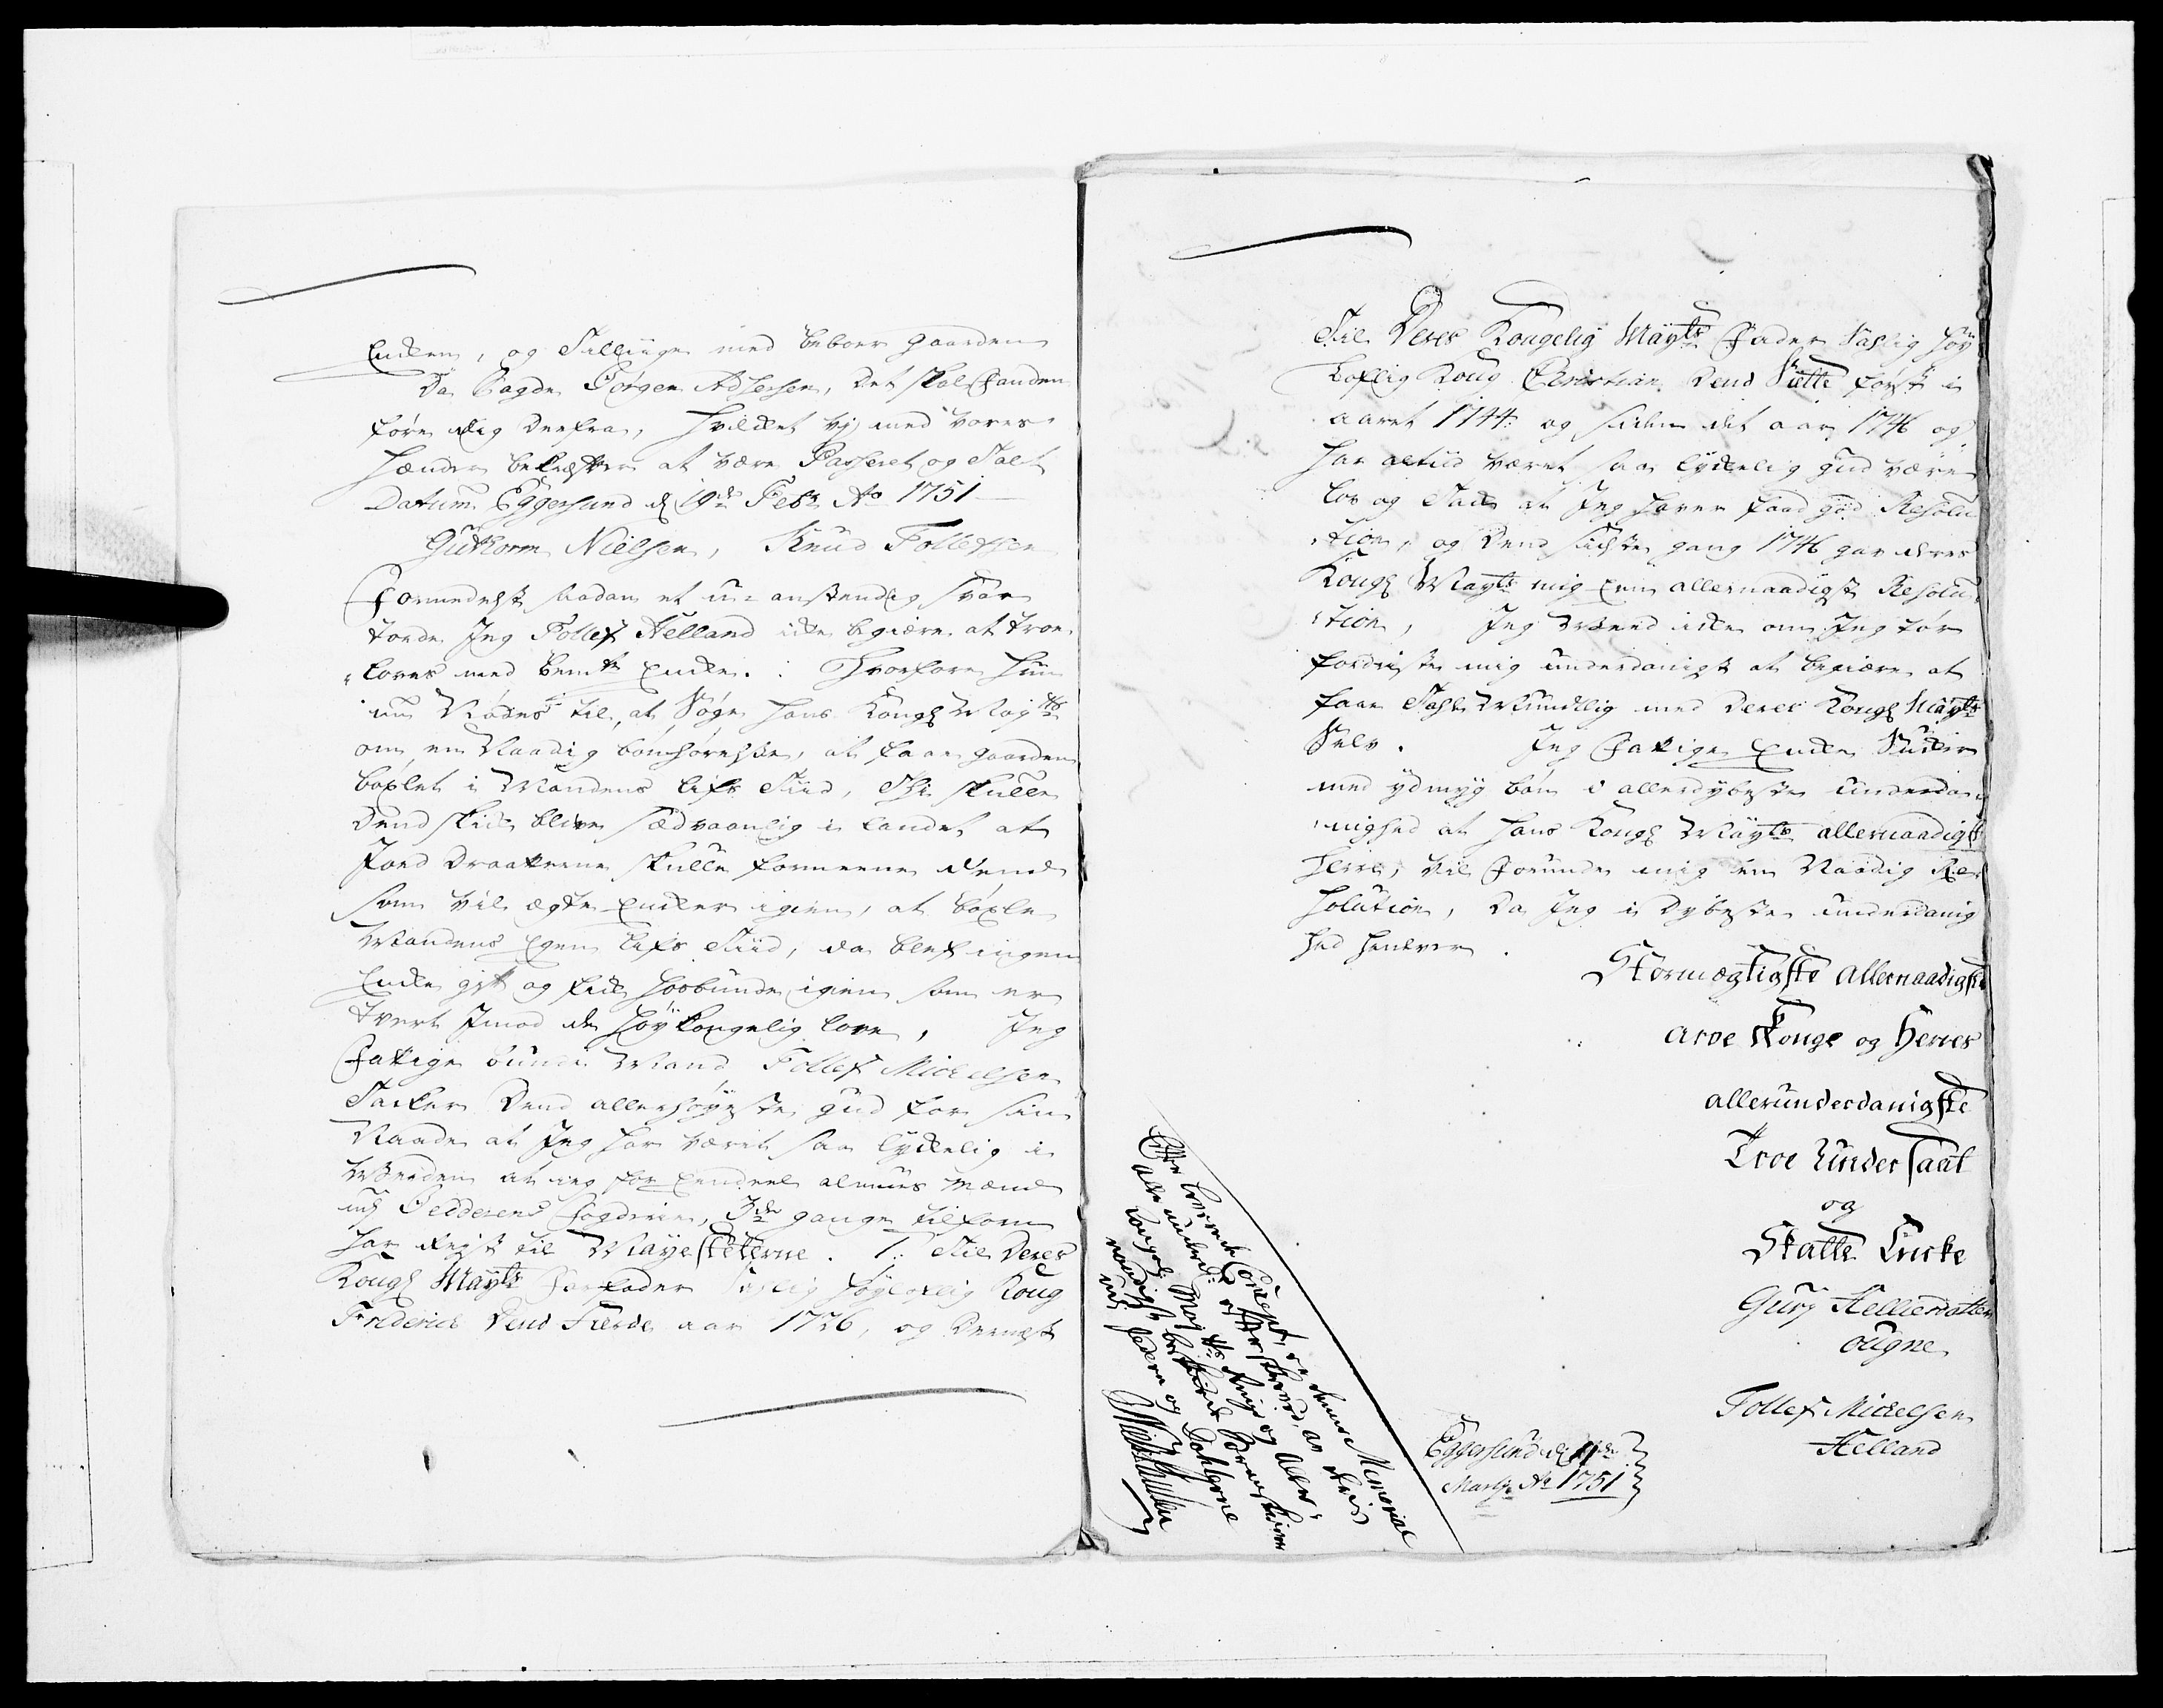 Enken, og Tilliige med beboer gaarden
Da Sagde Jørgen Adsersen, Det skal Fanden
føre dig derfra, Hvilket vj med vores
Hænder bekræfter at være Passeret og Talt
Datum Eggersund d 19de Febr Ao 1751
Gutorm Nielsen, Knud Tollefsen
Formedelst saadan et u-anstendig Svar
torde Jeg Tollef Helland icke begiære at troe-
loves med bemte Enke. Hvorfore hun
nu Nødes til, at Søge Hans Kongl Mayts
om en Naadig bønhørelse, at faae gaarden
boxlet i Mandens lifs Tiid, Thi skulle
Dend skik blive sædvaanlig i Landet at
Jord Drotterne skulle formeene dend
som vil ægte Enker igien, at boxle
Mandens Egen Lifs Tiid, da blef ingen
Enke gift og fick Hosbunde igien som er
tvert Jmod de Høy Kongelig love, Jeg
Fattige bunde Mand Tollef Mickelsen
Tacker Dend allerhøyeste gud for sin
Naade at Jeg har været saa lyckelig i
Verden at jeg for Eendeel almues mænd
udj Fogderie, 3de gange tilforn
har Reist til Mayesteterne. 1: Til Deres
Kongl Mayts Farfader Salig Høylovlig Kong
Friderich Dend Fierde aar 1726, og Dernest
Til Deres Kongelig Mayts Fader Salig Høy
Loflig Kong Christian Dend Siette først i
aaret 1744 og siden det aar 1746 og
har altiid været saa lyckelig gud være
lov og Tack at Jeg haver faaed god Resolu
tion, og Dend sidste gang 1746 gav deres
Kongl Mayts mig Een allernaadigst Resolu
tion, Jeg Veed icke om Jeg tør
fordriste mig underdanigst at begiære at
faae Tahle Mundtlig med Deres Kongl Mayts
Selv. Jeg Fattige Enke
med ydmyg bøn i allerdybeste underda
nighed at Hans Kongl Mayts allernaadigst
Herre, vil Forunde mig een Naadig Re
solution, Da Jeg i Dybeste underdanig
hed henlever
Stormægtigste Allernaadigste
arve Konge og Herres
allerunderdanigste
Troe Undersaat
og
Skatte Encke
Gury Helliesdatter
ougne
Tollef Mickelsen
Helland
Eggersund d 11de
Marty Ao 1751
Efter leverede Concept, er denne Memorial
af Deris
Kongel: Mayts og Aller-
naadigst
og Dahlerne